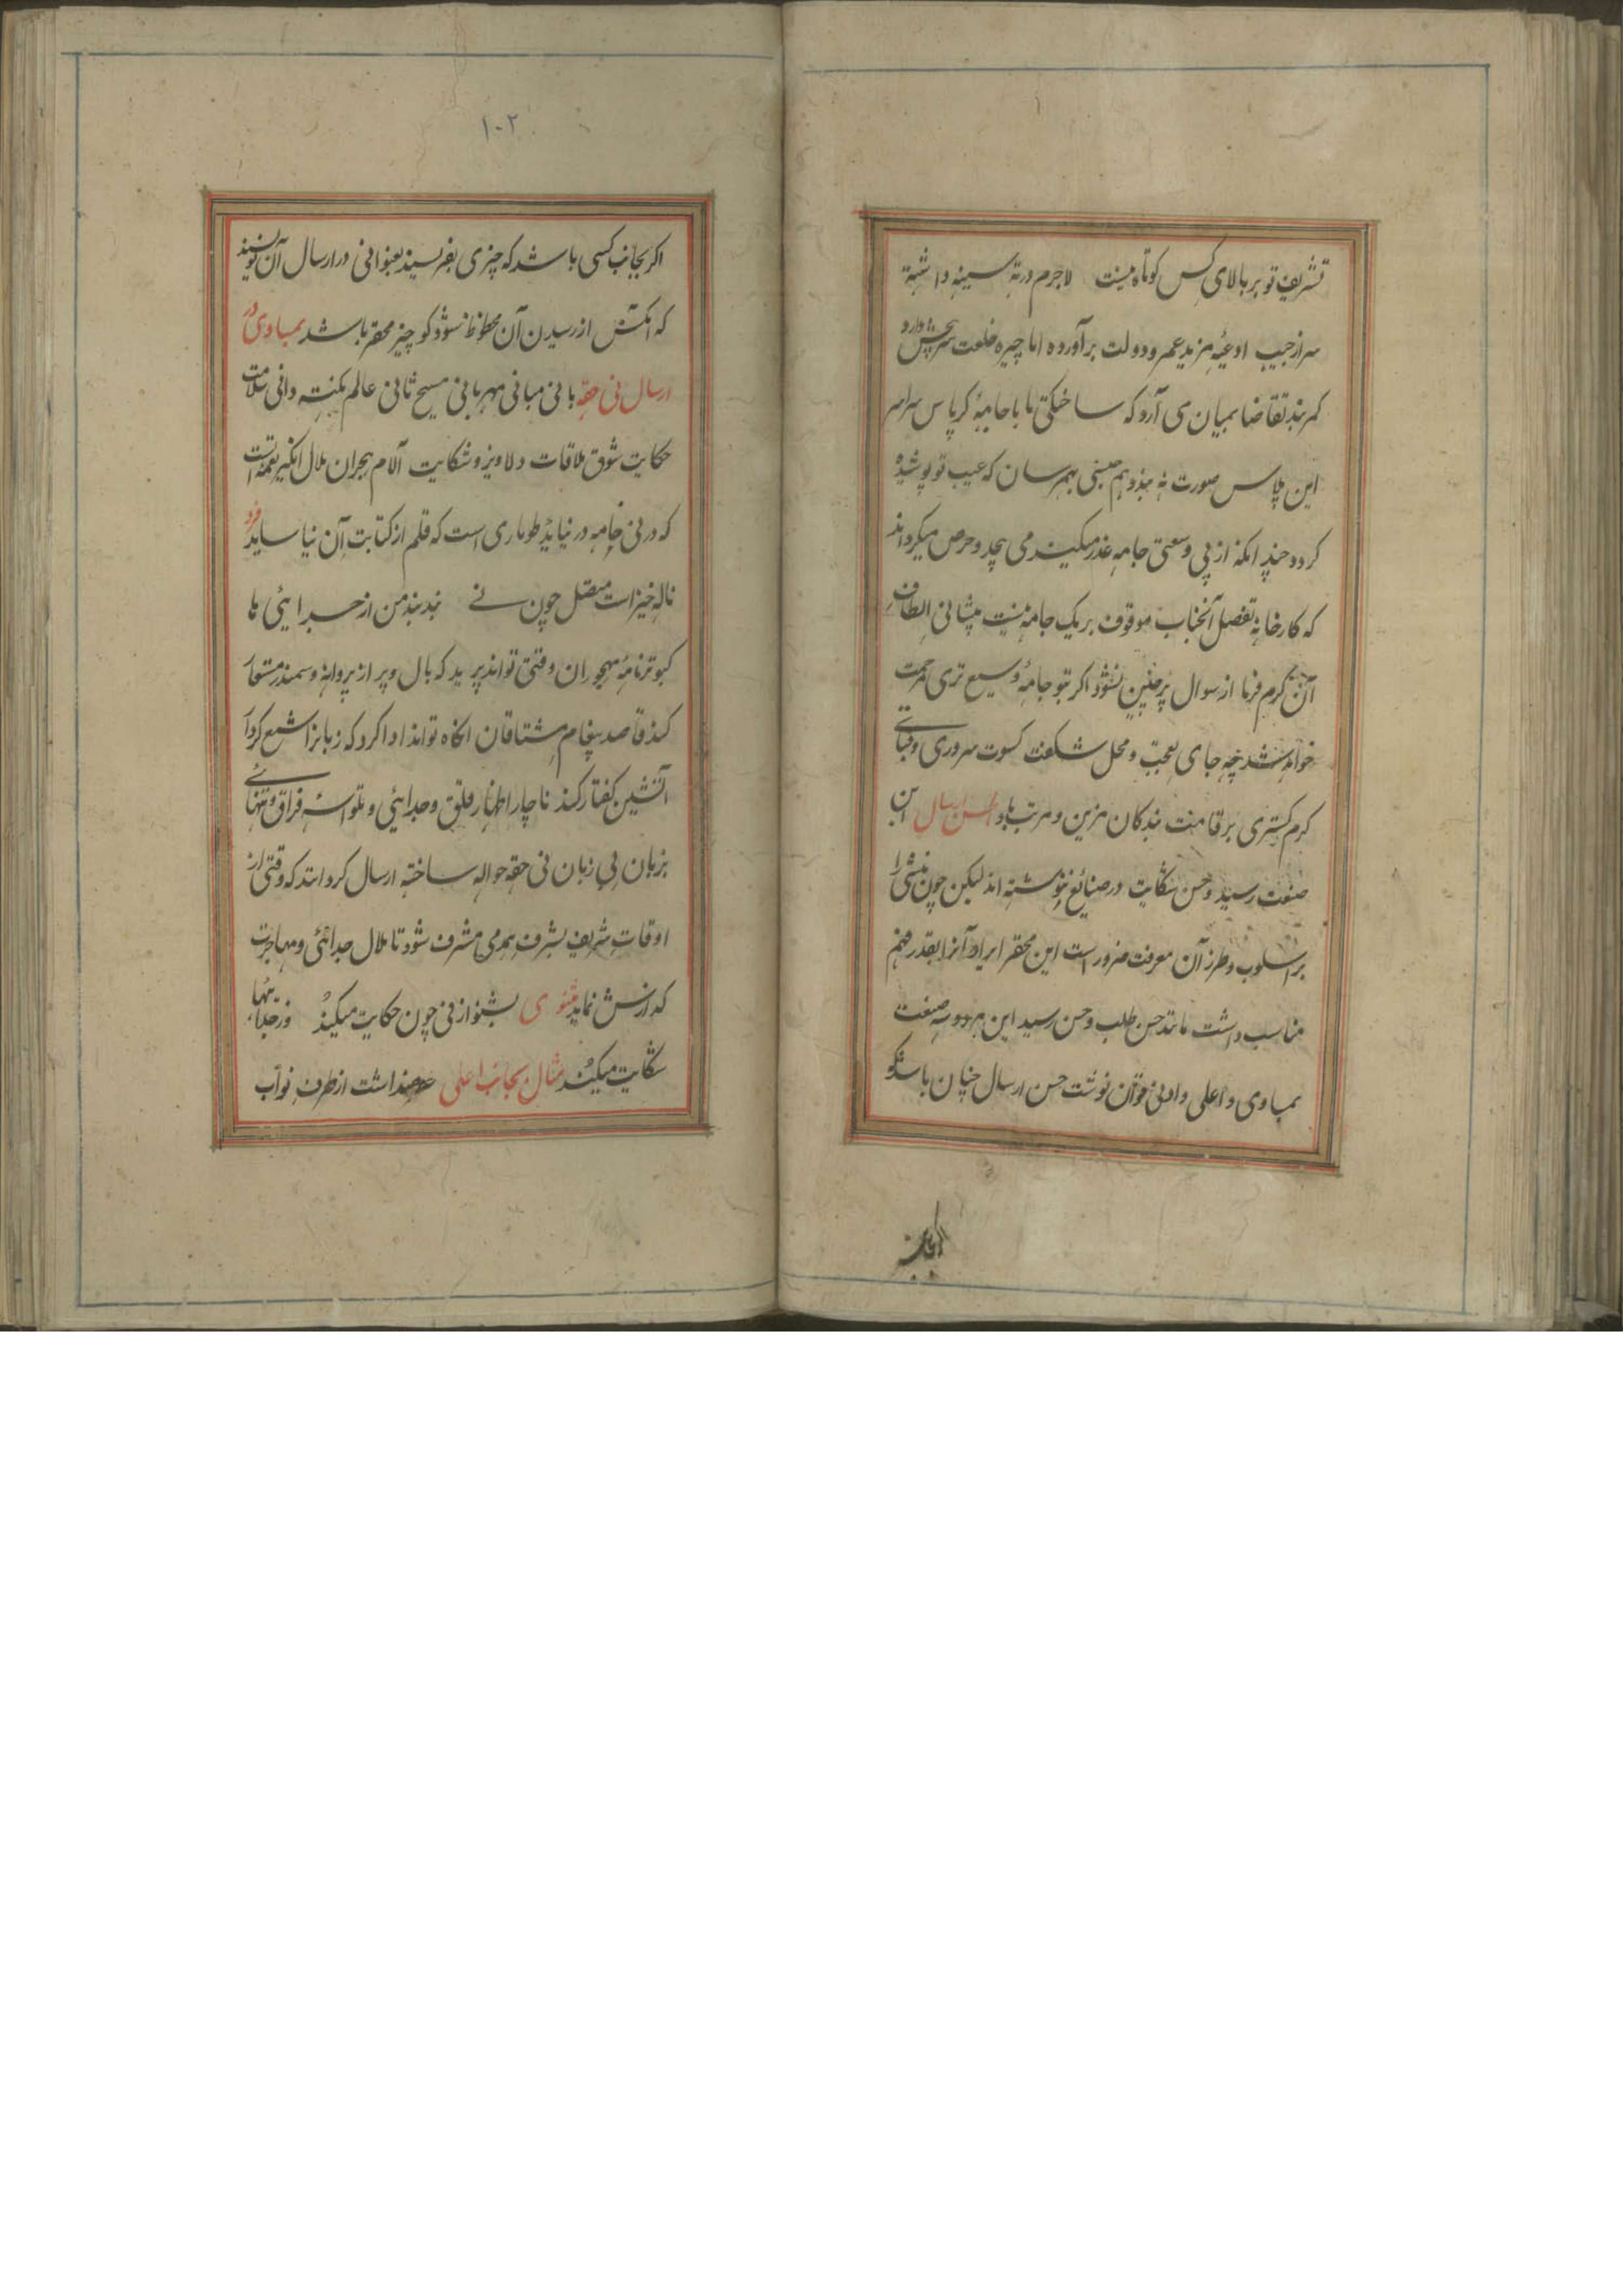 تشریف تو بر بالای کس کوتاه نیست لاجرم درته سینه داشته
سر از جیب ادعیه مزید عمر و دولت برآورده اما چیره خلعت
کمربند تقاضا بمیان می آرد که ساختگی ما با جامهٔ کرپاس سراسر
این پلاس صورت نه بندد هم جنسی بهم رسان که عیب تو پوشیده
کردد چندانکه از بی وسعتی جامه عذر میکند می پیچد و حرص میکرداند
که کارخانهٔ تفضل آنجناب موقوف بر یک جامه نیست پیشانی الطاف
آن کرم فرما از سوال پرچین نشود اکر بتو جامهٔ وسیع تری مرحمت
خواهد شد چه جای تعجب و محل شکفت کسوت سروری و قبای
کرم کستری بر قامت بندکان مزین و مرتب باد حسن ارسال این
صنعت رسید و حسن شکایت در صنایع ننوشته اند لیکن چون منشی را
بر اسلوب و طرز آن معرفت ضرور است این محقر ایراد آنرا بقدر فهم
مناسب داشت مانند حسن طلب و حسن رسید این هر دو سه صنعت
بمساوی و اعلی و ادنی توان نوشت حسن ارسال چنان باشد که
۱۰۲
اکر بجانب کسی باشد که چیزی بفرسیند بعنوانی در ارسال آن نویسند
که آنکس از رسیدن آن محظوظ شود کو چیز محقر باشد بمساوی در
ارسال نی حقه بانی مبانی مهربانی مسیح ثانی عالم نکته دانی سلامت
حکایت شوق ملاقات دلاویز و شکایت آلام هجران ملال انکیز نغمه است
که در نی خامه در نیاید طوماری است که قلم از کتابت آن نیاساید فرد
ناله خیز است متصل چون نے بند بند من از جدائی ها
کبوتر نامهٔ مهجوران وقتی تواند پرید که بال و پر از پروانه و سمندر مستعار
کند قاصد پیغام مشتاقان انکاه تواند ادا کرد که زبانرا شمع کردار
آتشین کفتار کند ناچار اظهار قلق و جدائی و تلواسهٔ فراق و تنهائے
بزبان بی زبان نی حقه حواله ساخته ارسال کردانند که وقتی از
اوقات شریف بشرف همدمی مشرف شود تا ملال جدائی و مهاجرت
کذارش نماید مثنوی بشنو از نی چون حکایت میکند وز جدائیها
شکایت میکند مثال بجانب اعلی عرضداشت از طرف نواب